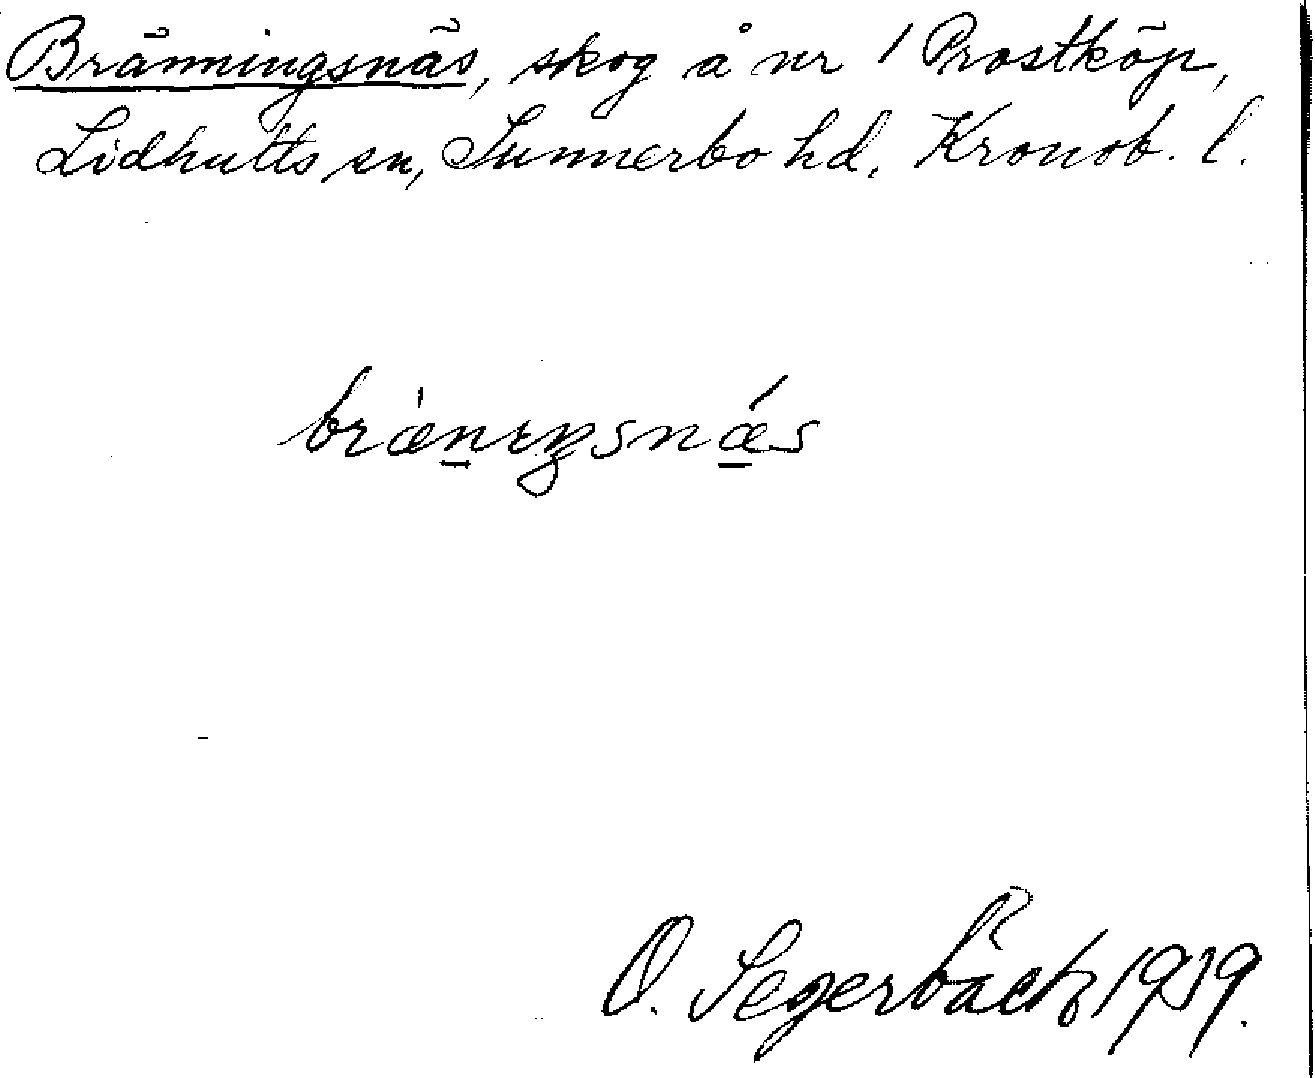 Bränningsnäs, skog å nr 1 Prostköp,
Lidhults sn, Sunnerbo hd. Kronob. l.
brǽnıŋsnǽs
O. Segerbäck 1939.